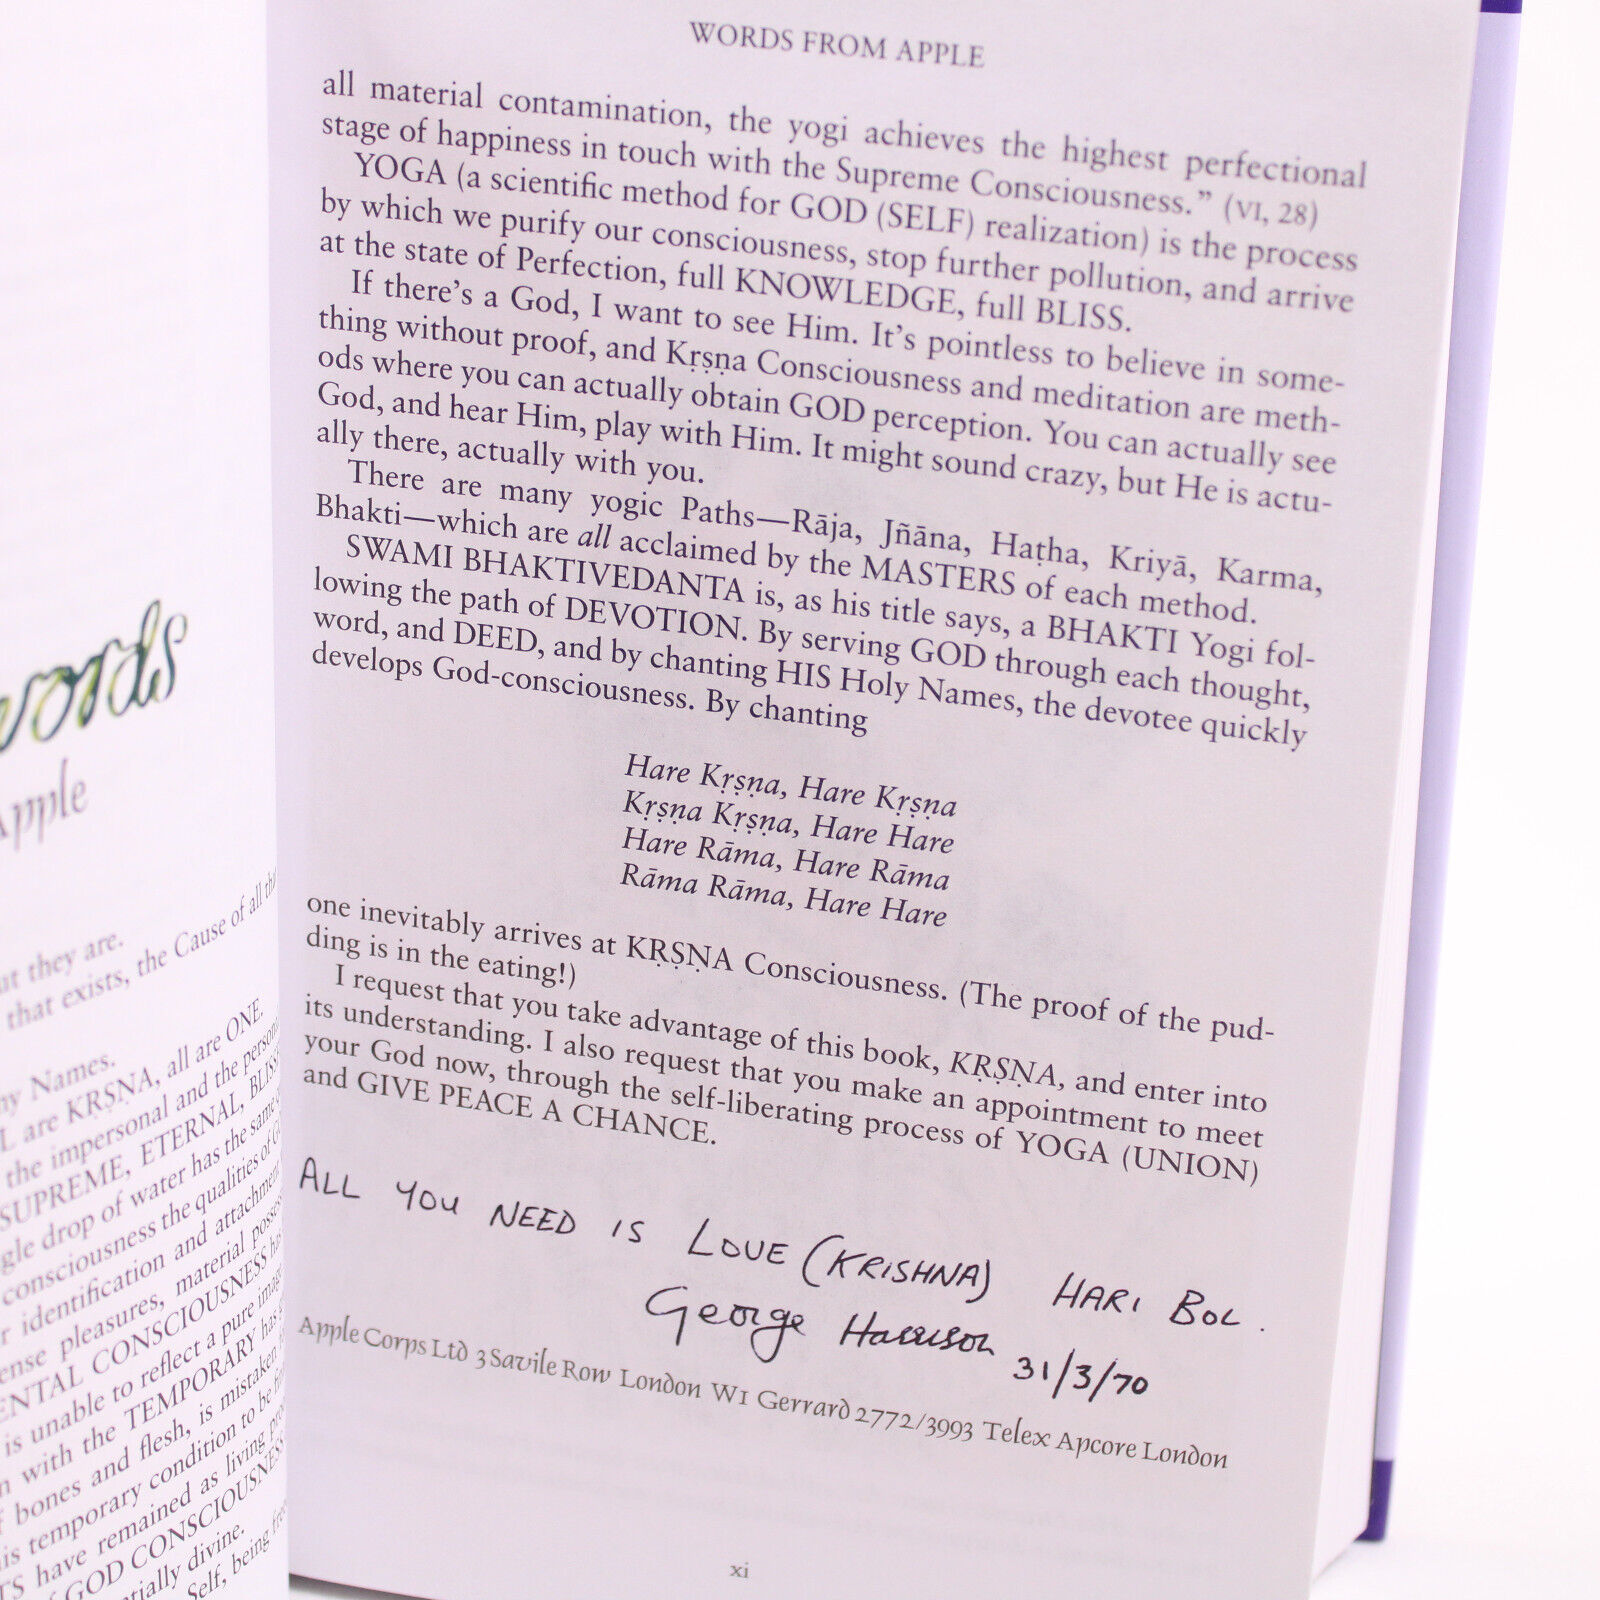 words
Apple
but they are.
that exists, the Cause of all
Names.
are KṚṢṆA, all are ONE.
the impersonal and the
SUPREME, ETERNAL, BLISS
drop of water has the same
consciousness the qualities of
identification and attachment
pleasures, material
CONSCIOUSNESS
is unable to reflect a pure image
with the TEMPORARY has
bones and flesh, is mistaken
temporary condition to be
have remained as living
GOD CONSCIOUSNESS
divine.
Self, being
WORDS FROM APPLE
all material contamination, the yogi achieves the highest perfectional
stage of happiness in touch with the Supreme Consciousness.” (VI, 28)
YOGA (a scientific method for GOD (SELF) realization) is the process
by which we purify our consciousness, stop further pollution, and arrive
at the state of Perfection, full KNOWLEDGE, full BLISS.
If there’s a God, I want to see Him. It’s pointless to believe in some-
thing without proof, and Kṛṣṇa Consciousness and meditation are meth-
ods where you can actually obtain GOD perception. You can actually see
God, and hear Him, play with Him. It might sound crazy, but He is actu-
ally there, actually with you.
There are many yogic Paths—Rāja, Jñāna, Haṭha, Kriyā, Karma,
Bhakti—which are all acclaimed by the MASTERS of each method.
SWAMI BHAKTIVEDANTA is, as his title says, a BHAKTI Yogi fol-
lowing the path of DEVOTION. By serving GOD through each thought,
word, and DEED, and by chanting HIS Holy Names, the devotee quickly
develops God-consciousness. By chanting
Hare Kṛṣṇa, Hare Kṛṣṇa
Kṛṣṇa Kṛṣṇa, Hare Hare
Hare Rāma, Hare Rāma
Rāma Rāma, Hare Hare
one inevitably arrives at KṚṢṆA Consciousness. (The proof of the pud-
ding is in the eating!)
I request that you take advantage of this book, KṚṢṆA, and enter into
its understanding. I also request that you make an appointment to meet
your God now, through the self-liberating process of YOGA (UNION)
and GIVE PEACE A CHANCE.
ALL YOU NEED IS LOVE (KRISHNA) HARI BOL.
George Harrison
31/3/70
Apple Corps Ltd 3 Savile Row London W1 Gerrard 2772/3993 Telex Apcore London
xi